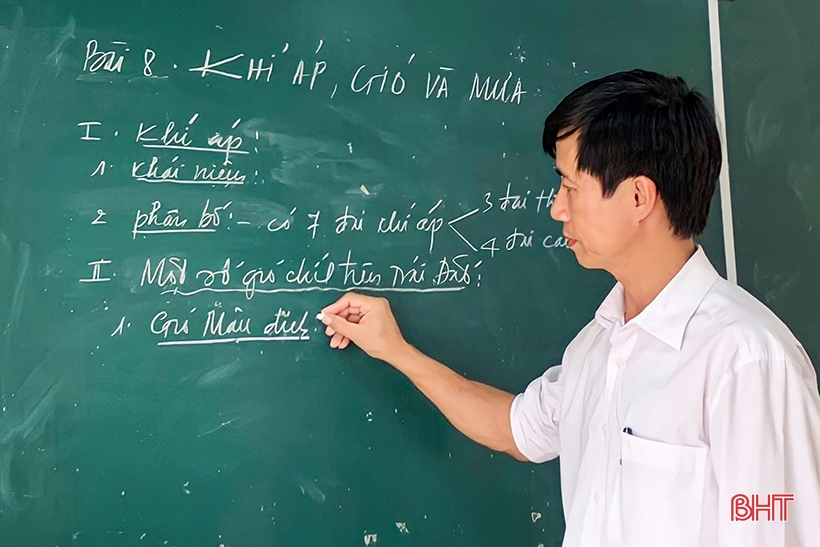 Bài 8. KHÍ ÁP, GIÓ VÀ MƯA
I. Khí áp:
1. Khái niệm:
2 phân bố: - có 7 đai khí áp
3 đai th
4 đai ca
II. Một số gió chính trên Trái Đất:
1. Gió Mậu dịch:
BHT